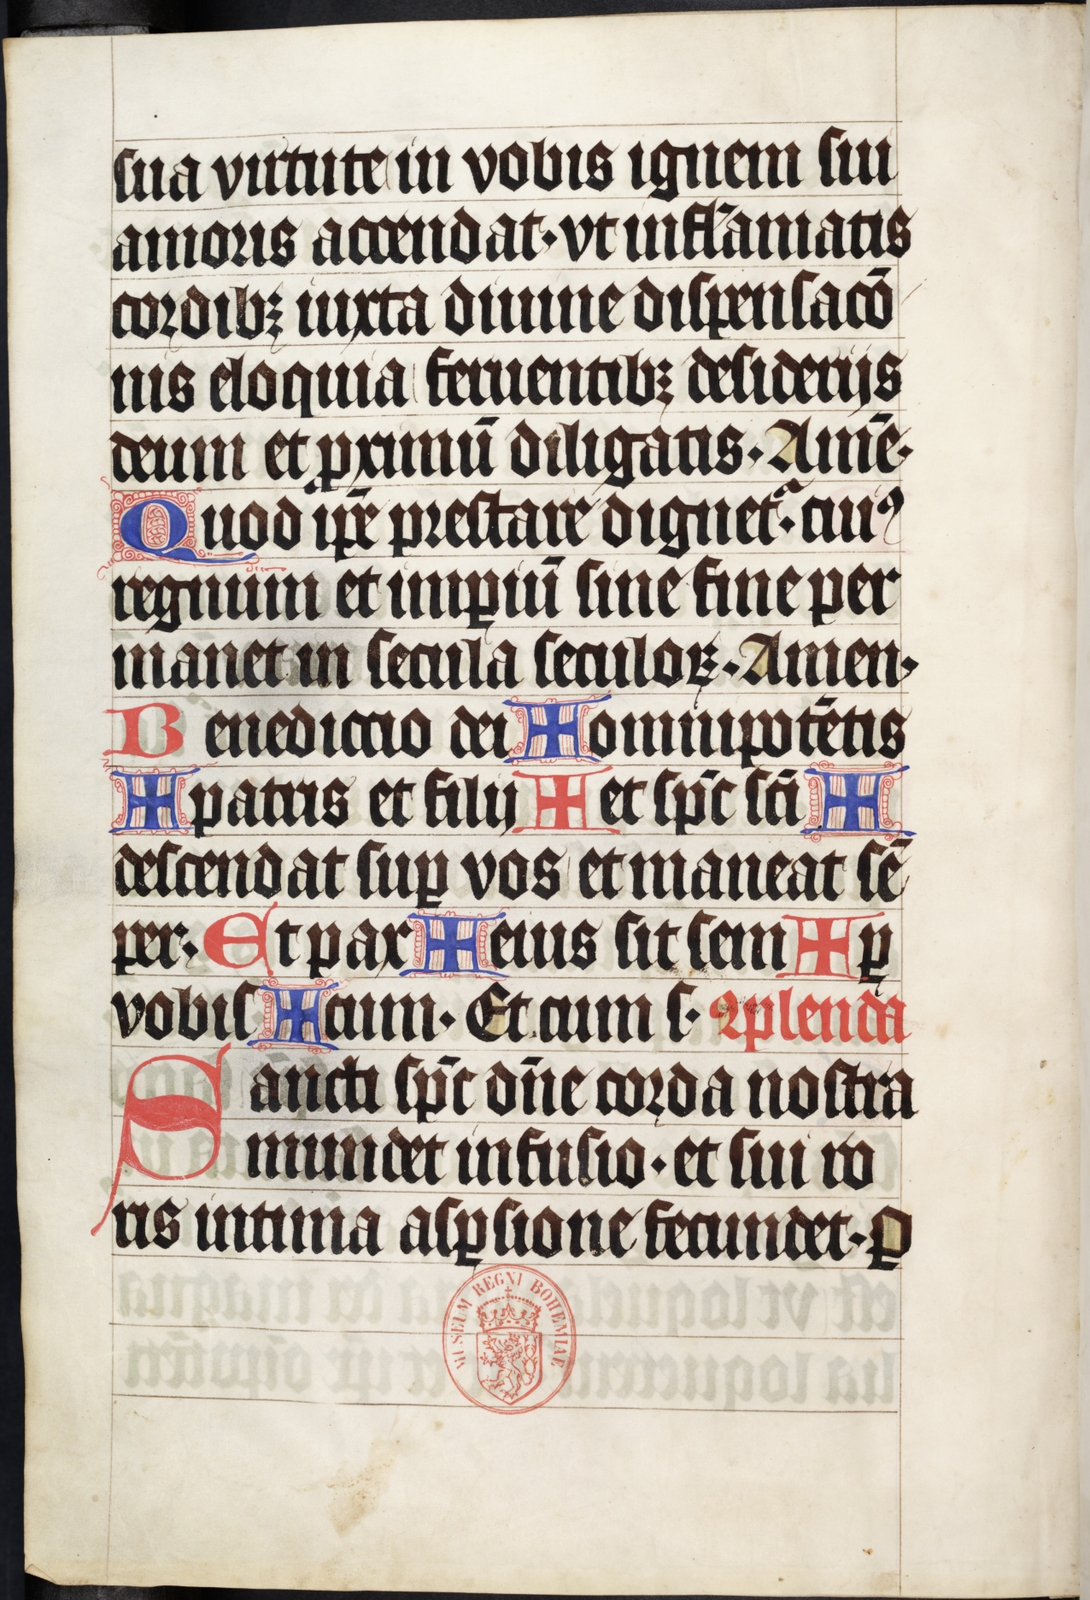 sua virtute in vobis ignem sui
amoris accendat · vt infla̅matis
cordibꝫ iuxta diuine dispensaco̅
nis eloquia feruentibꝫ desiderijs
deum et ꝓximu̅ diligatis · Ame̅ ·
Quod ip̅e prestare dignetᷓ · cuiꝰ
regnum et imꝑiu̅ sine fine per
manet in secula seculoꝝ · Amen ·
Benediccio dei ✠ omnipote̅tis
✠ patris et filij ✠ et sp̅c sc̅i ✠
descendat suꝑ vos et maneat se̅
per · Et pax ✠ eius sit sem ✠ ꝑ
vobis ✠ cum · Et cum s · 2plenda
Sancti sp̅c dn̅e corda nostra
mundet infusio · et sui ro
ris intima asꝑsione fecundet · ꝑ
MUSEUM REGNI BOHEMIAE